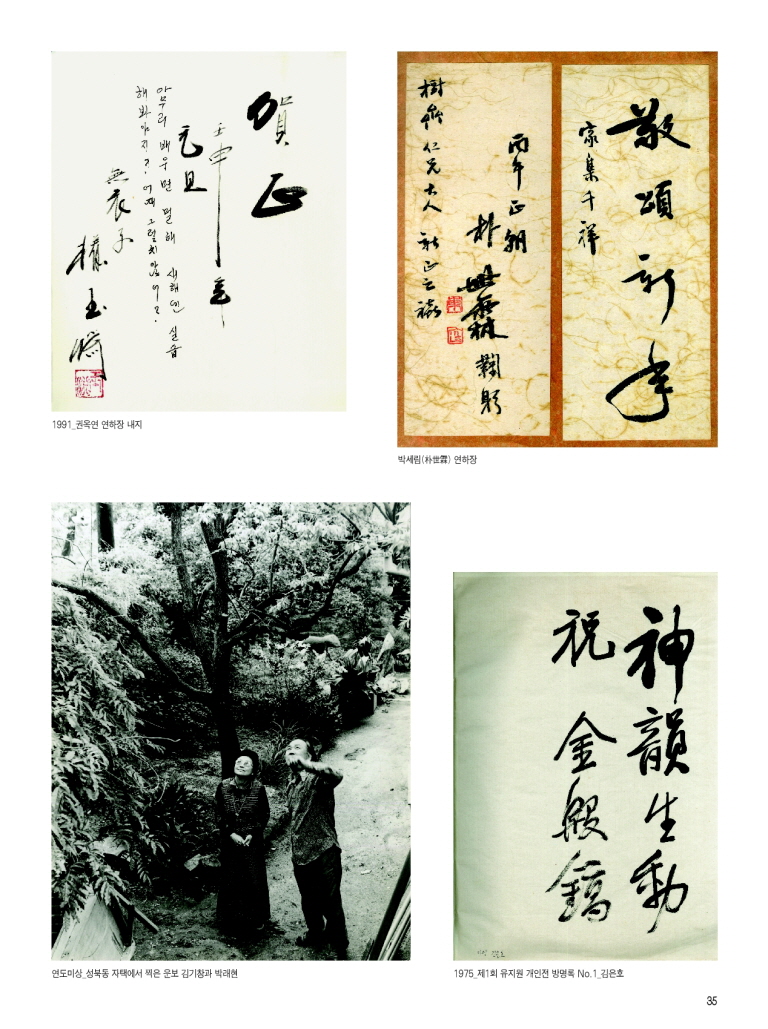 賀正
壬申年
元旦
아무리 배우면 뭘해 새해엔 실습
해봐야지? 어째 그렇치않어?
無衣子
權玉淵
1991_권옥연 연하장 내지
敬頌新年
家集千祥
丙午正朝
朴世霖 鞠躬
仁兄大人 新正之禧
박세림(朴世霖) 연하장
연도미상_성북동 자택에서 찍은 운보 김기창과 박래현
神韻生動
祝 金殷鎬
1975_제1회 유지원 개인전 방명록 No.1_김은호
35